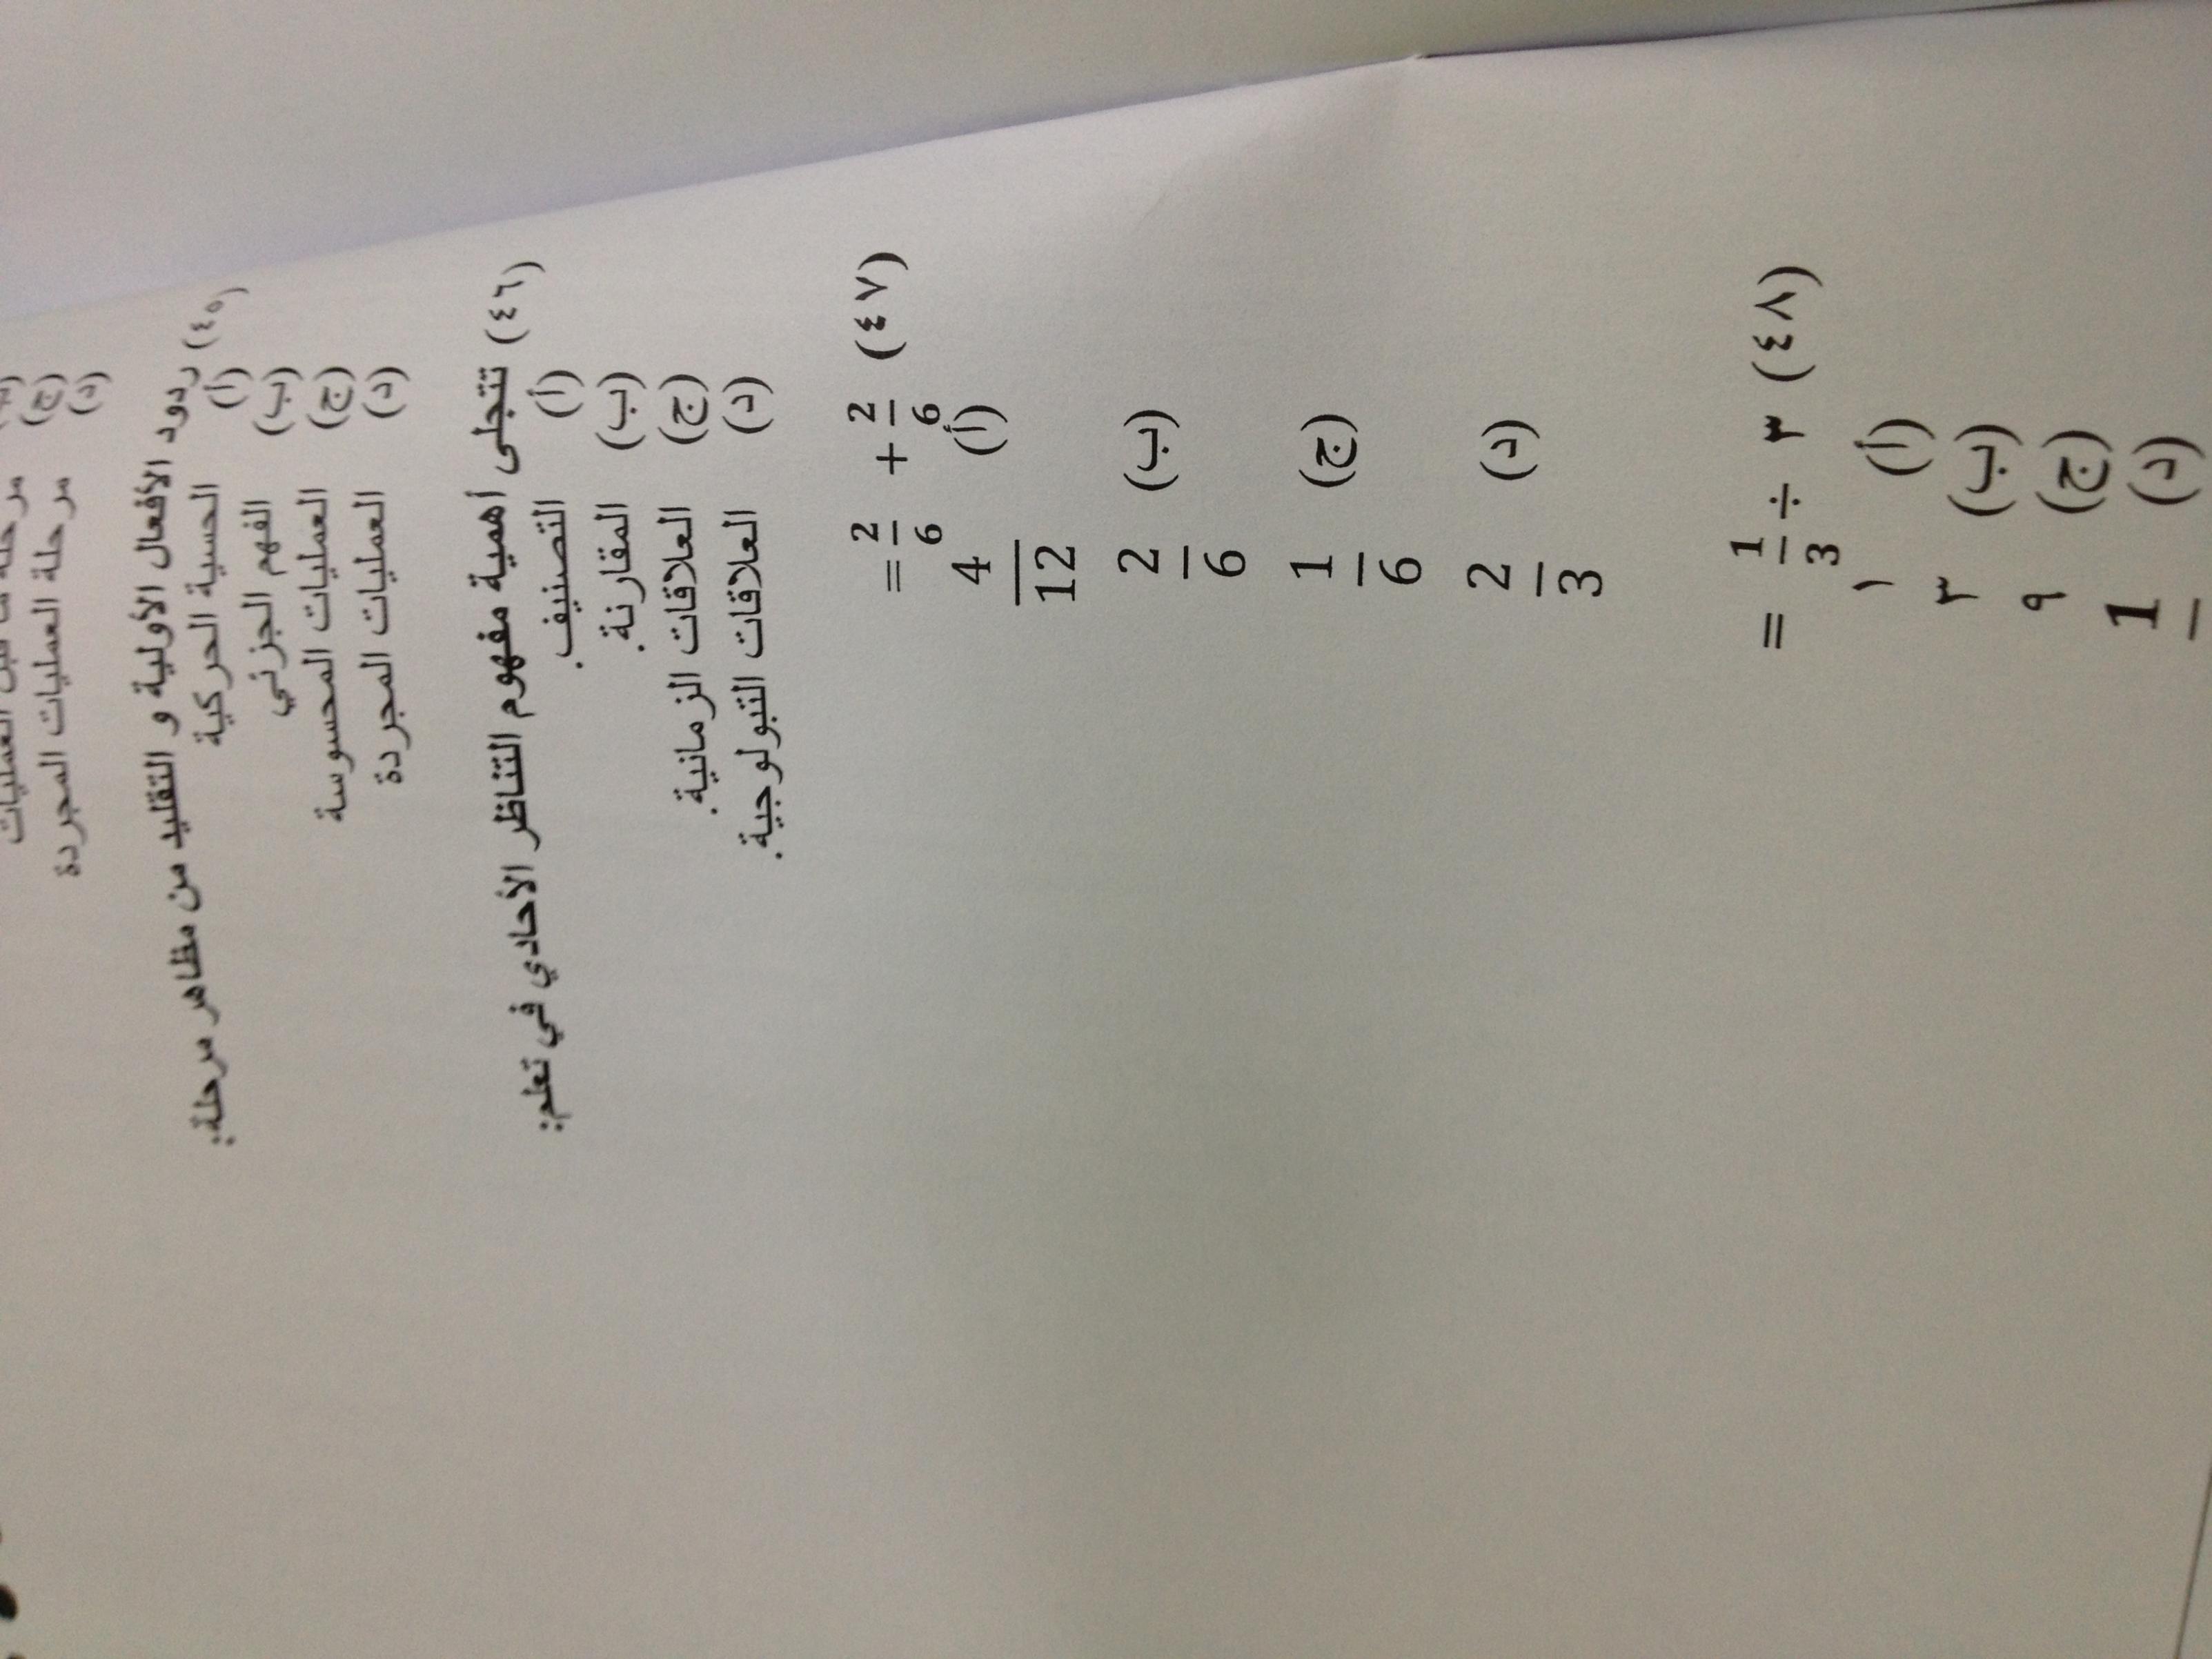 (ج)
(د) مرحلة العمليات المجردة
(٤٥) ردود الأفعال الأولية و التقليد من مظاهر مرحلة:
(أ) الحسية الحركية
(ب) الفهم الجزئي
(ج) العمليات المحسوسة
(د) العمليات المجردة
(٤٦) تتجلى أهمية مفهوم التناظر الأحادي في تعلم:
(أ) التصنيف.
(ب) المقارنة.
(ج) العلاقات الزمانية.
(د) العلاقات التبولوجية.
(٤٧) 2/6 + 2/6 =
(أ) 4/12
(ب) 2/6
(ج) 1/6
(د) 2/3
(٤٨) ٣ ÷ 1/3 =
(أ) ١
(ب) ٣
(ج) ٩
(د) 1